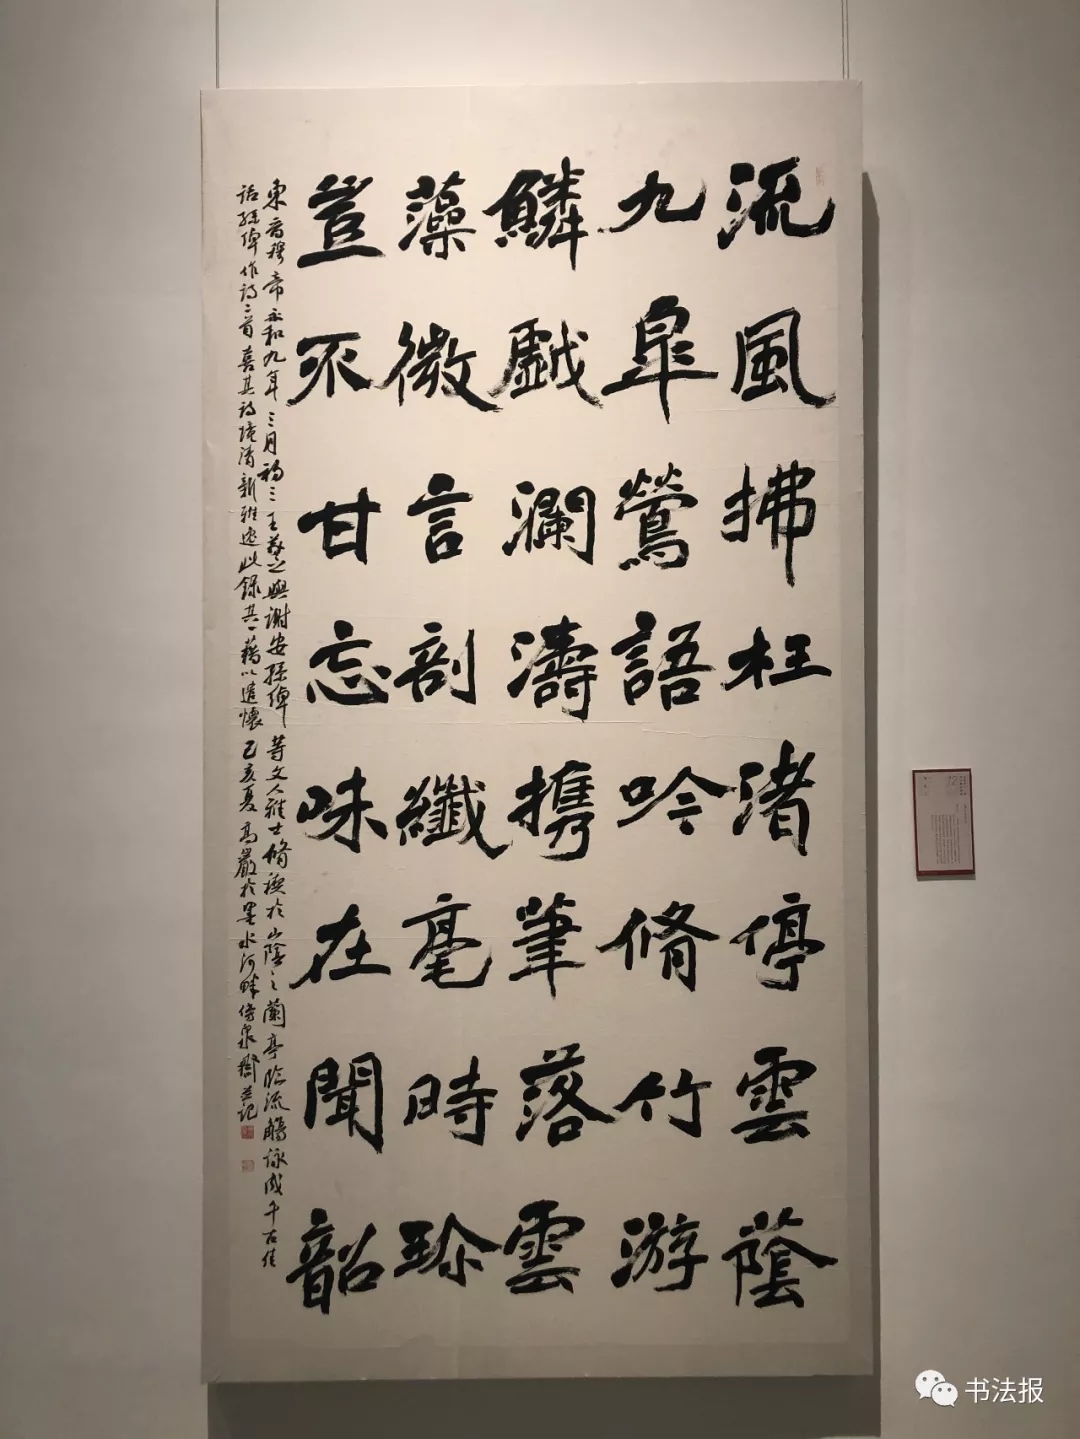 流風拂枉渚停雲蔭
九皐鶯語吟脩竹游
鱗戲瀾濤攜筆落雲
藻微言剖纖毫時珍
豈不甘忘味在聞韶
東晉穆帝永和九年三月初三王羲之與謝安孫綽等文人雅士脩禊於山陰之蘭亭臨流觴詠成千古佳
話孫綽作詩二首喜其詩境清新雅逸此錄其一藉以遣懷己亥夏高嚴於墨水河畔傍泉齋并記
书法报